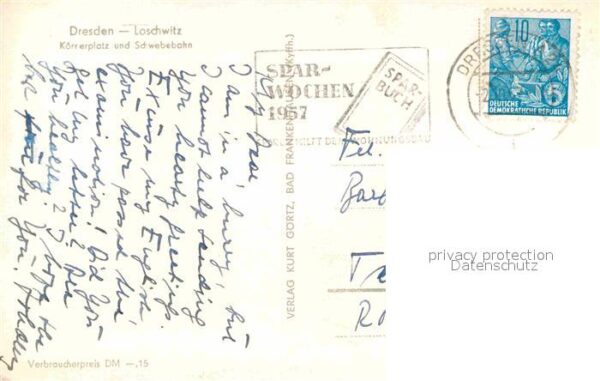 Dresden — Loschwitz
Körnerplatz und Schwebebahn
My Dear,
I am in a hurry, but
I cannot help sending
you hearty greetings.
Excuse my English.
You have passed the
examination! Did you
get my letter? Are
you healthy? I hope the
best for you.
Verbraucherpreis DM —,15
VERLAG KURT GÖRTZ, BAD FRANKENHAUSEN (Kyffh.)
SPAR-
WOCHEN
1957
SPAR-
BUCH
DRESDEN
10
5
DEUTSCHE
DEMOKRATISCHE REPUBLIK
privacy protection
Datenschutz